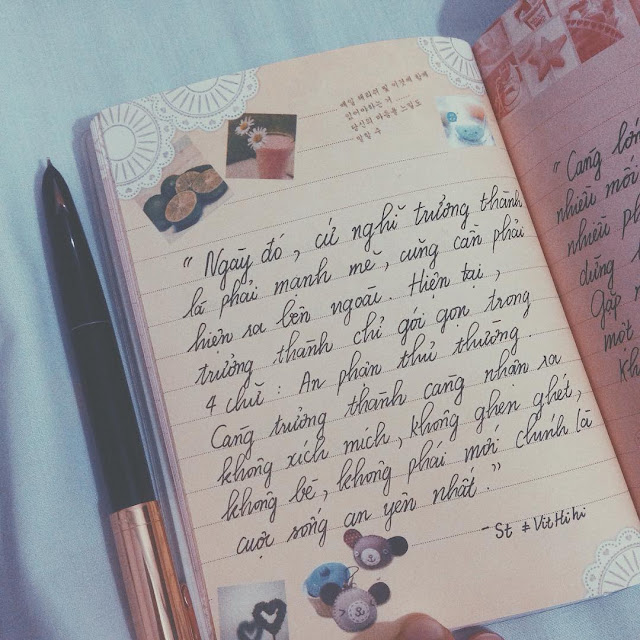 매일
있어야하는 거
당신의 마음을
" Ngày đó, cứ nghĩ trưởng thành
là phải mạnh mẽ, cũng cần phải
hiện ra bên ngoài. Hiện tại,
trưởng thành chỉ gói gọn trong
4 chữ: An phận thủ thường.
Càng trưởng thành càng nhận ra
không xích mích, không ghen ghét,
không bè, không phái mới chính là
cuộc sống an yên nhất."
- St ≠ VitHihi
" Càng lớn
nhiều mối
nhiều
dừng
Gặp
một